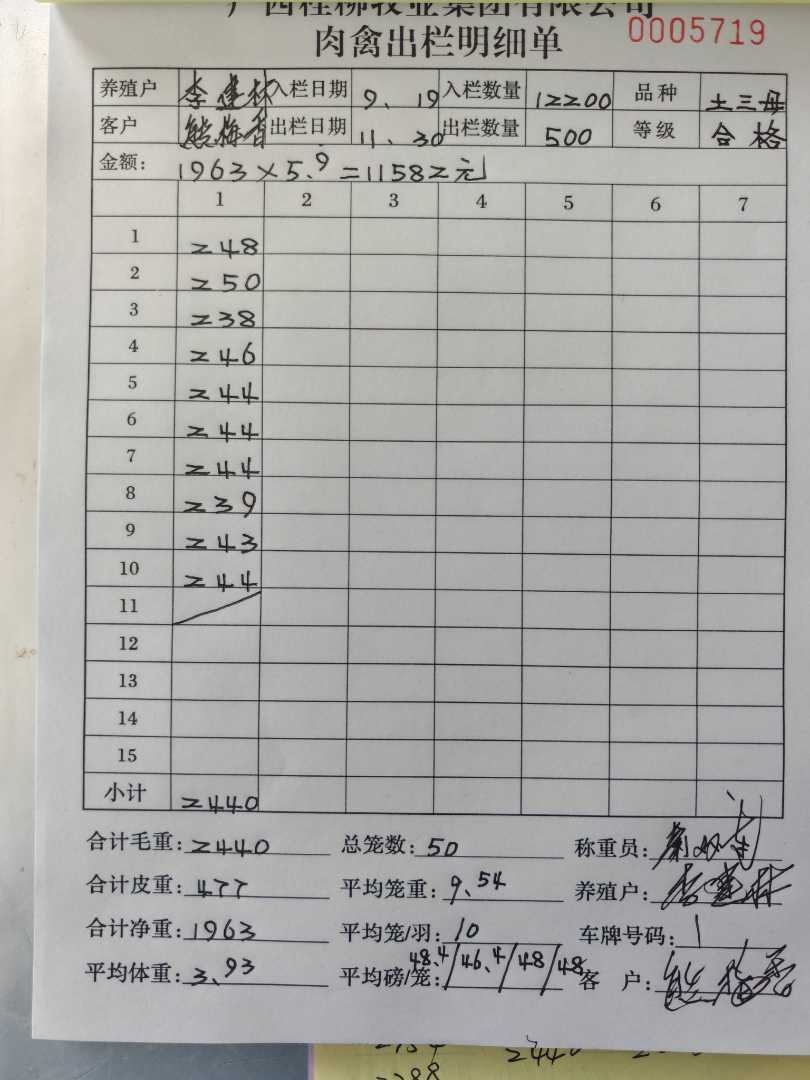 广西桂柳牧业集团有限公司
肉禽出栏明细单 0005719
养殖户 李建林 入栏日期 9、19 入栏数量 12200 品种 土三母
客户 熊梅香 出栏日期 11、30 出栏数量 500 等级 合格
金额: 1963×5.9=11582元
1 2 3 4 5 6 7
1 248
2 250
3 238
4 246
5 244
6 244
7 244
8 239
9 243
10 244
11
12
13
14
15
小计 2440
合计毛重: 2440 总笼数: 50 称重员:
合计皮重: 477 平均笼重: 9.54 养殖户: 李建林
合计净重: 1963 平均笼/羽: 10 车牌号码: 1
平均体重: 3.93 平均磅/笼: 48.4/46.4/48/48 客户: 熊梅香
2440
2288